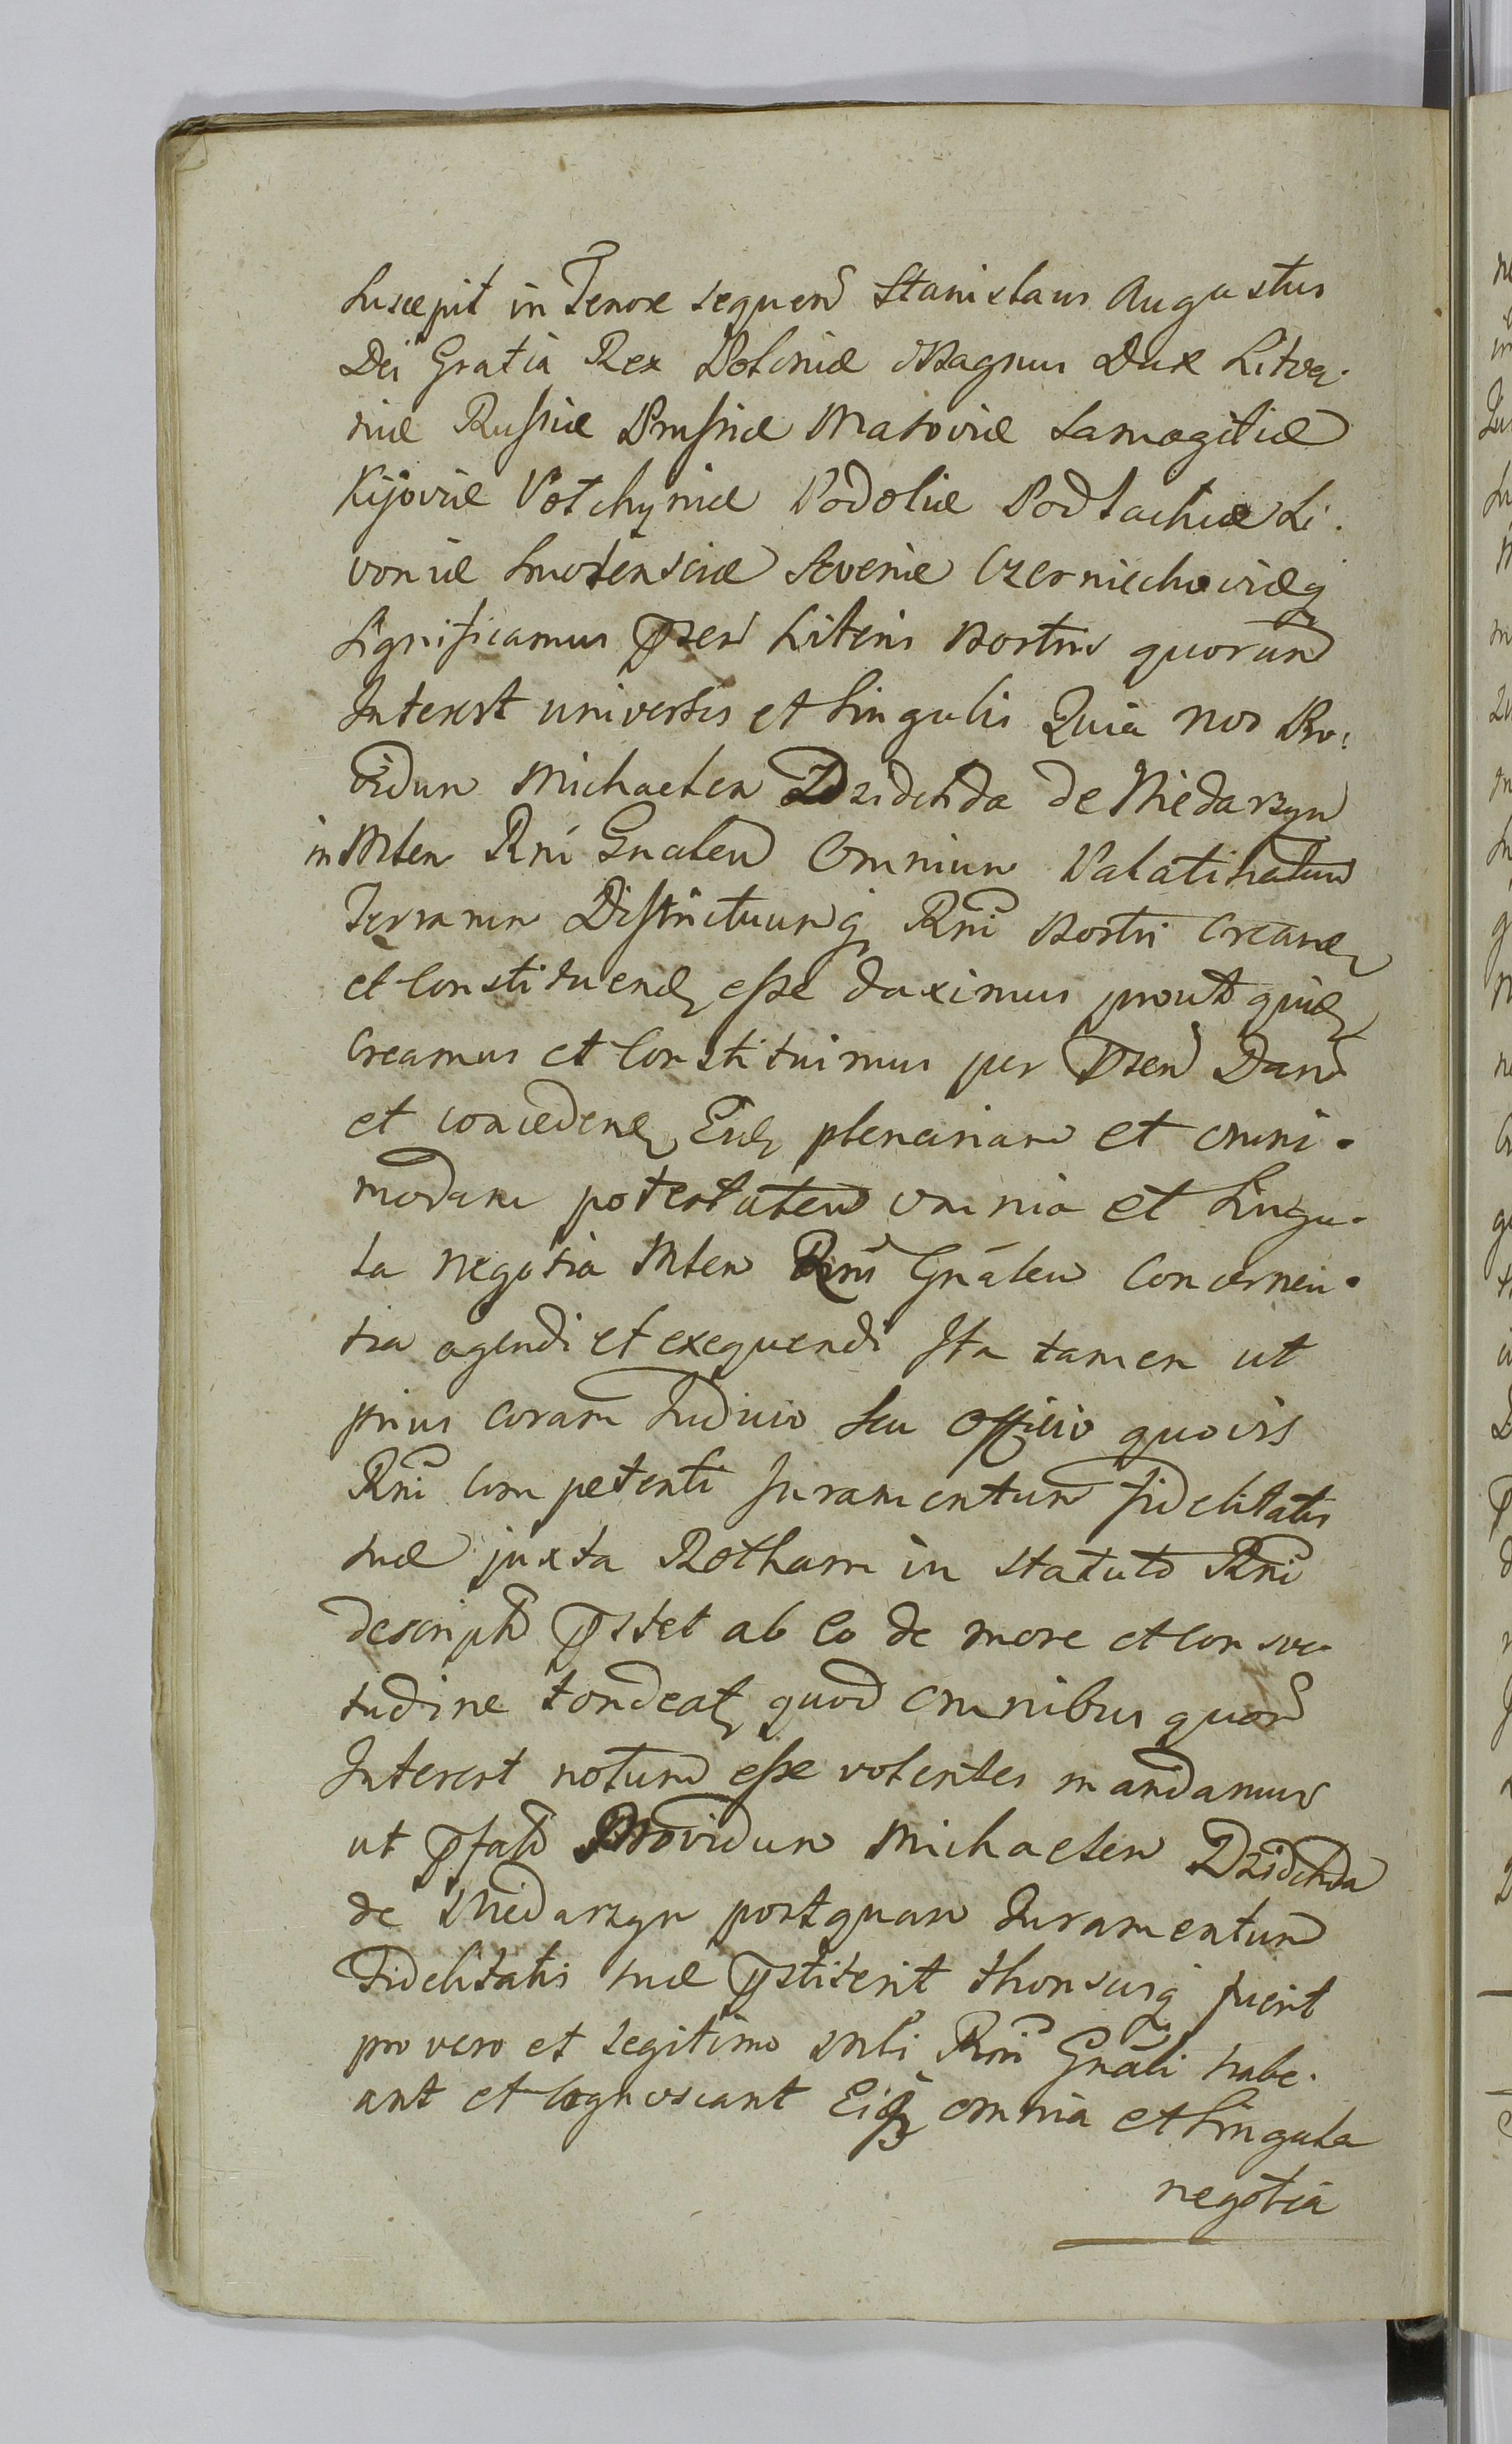 Suscepit in Tenore sequen Stanislaus Augustus
Dei Gratia Rex Poloniæ Magnus Dux Litva-
niæ Russiæ Prussiæ Masoviæ Samogitiæ
Kijoviæ Volchyniæ Podoliæ Podlachiæ Li-
voniæ Smolensciæ Severiæ Czerniechoviæq
Significamus Psen Literis Nostris quorum
Interest universis et Singulis Quia nos Pro-
vidum Michaelem Dzidchda de Niedarzyn
in Mlem Rni Gnalem Omnium Palatinatum
Terrarum Districtuumq Rni Nostri Creand
et Constituend esse duximus prout quid
Creamus et Constituimus per Psen Dan
et concedend Eid plenariam et omni-
modam potestatem omnia et Singu-
la negotia Mlem Rni Gnalem Concernen-
tia agendi et exequendi Ita tamen ut
prius coram Judicio Seu Officio quovis
Rni Competenti Juramentum fidelitatis
suæ juxta Rotham in Statuto Rni
descriptt Pstet ab Eo de more et consve-
tudine tondeat quod omnibus quor
Interest notum esse volentes mandamus
ut Pfatt Providum Michaelem Dzidchda
de Niedarzyn postquam Juramentum
Fidelitatis suæ Pstiterit thonsusq fuerit
pro vero et legitimo Mli Rni Gnali habe-
ant et Cognoscant Eiq omnia et Singula
negotia